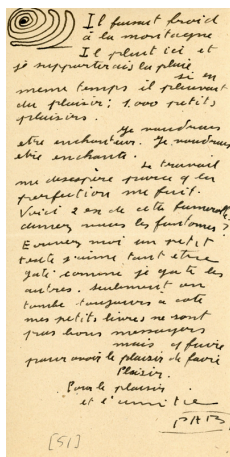 Il faisait froid
à la montagne
Il pleut ici et
je supporterais la pluie
si en
meme temps il pleuvait
du plaisir; 1.000 petits
plaisirs.
Je voudrais
etre enchanteur. Je voudrais
etre enchanté.
Le travail
me desespère parce q la
perfection me fuit.
Voici 2 ex de cette fumerolle.
aimez vous les fantomes?
Ecrivez moi un petit
texte j'aime tant etre
gaté comme je gate les
autres. seulement on
tombe toujours a coté
mes petits livres ne sont
pas bons messagers
mais q faire
pour avoir le plaisir de faire
Plaisir.
Pour le plaisir
et l'amitié
PAB
[51]